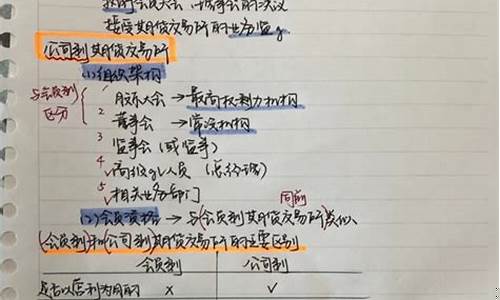 执行会员大会、理事会的决议
接受期货交易所的业务监管
公司制期货交易所
(1)组织架构
与会员制区分
1 股东大会 → 最高权利力机构
2 董事会 → 常设机构
3 监事会(或监事)
4 高级管理人员(总经理)
5 相关业务部门
同前
(2)会员资格 → 与(会员制期货交易所)类似、
(会员制)和(公司制)期货交易所的主要区别
会员制 公司制
是否以营利为目的 × √